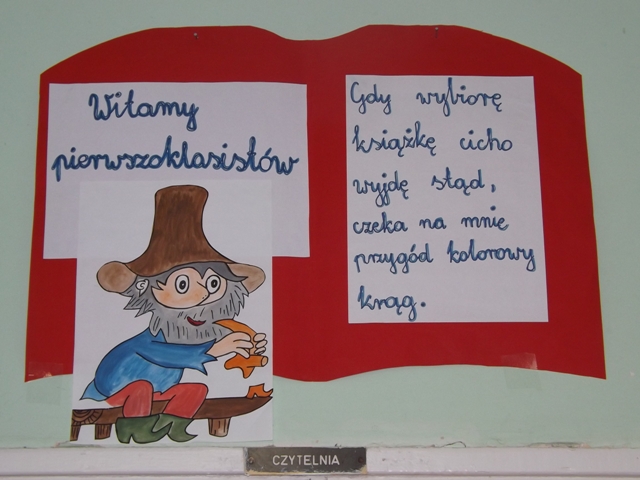 Witamy
pierwszoklasistów
Gdy wybiorę
książkę cicho
wyjdę stąd,
czeka na mnie
przygód kolorowy
krąg.
CZYTELNIA